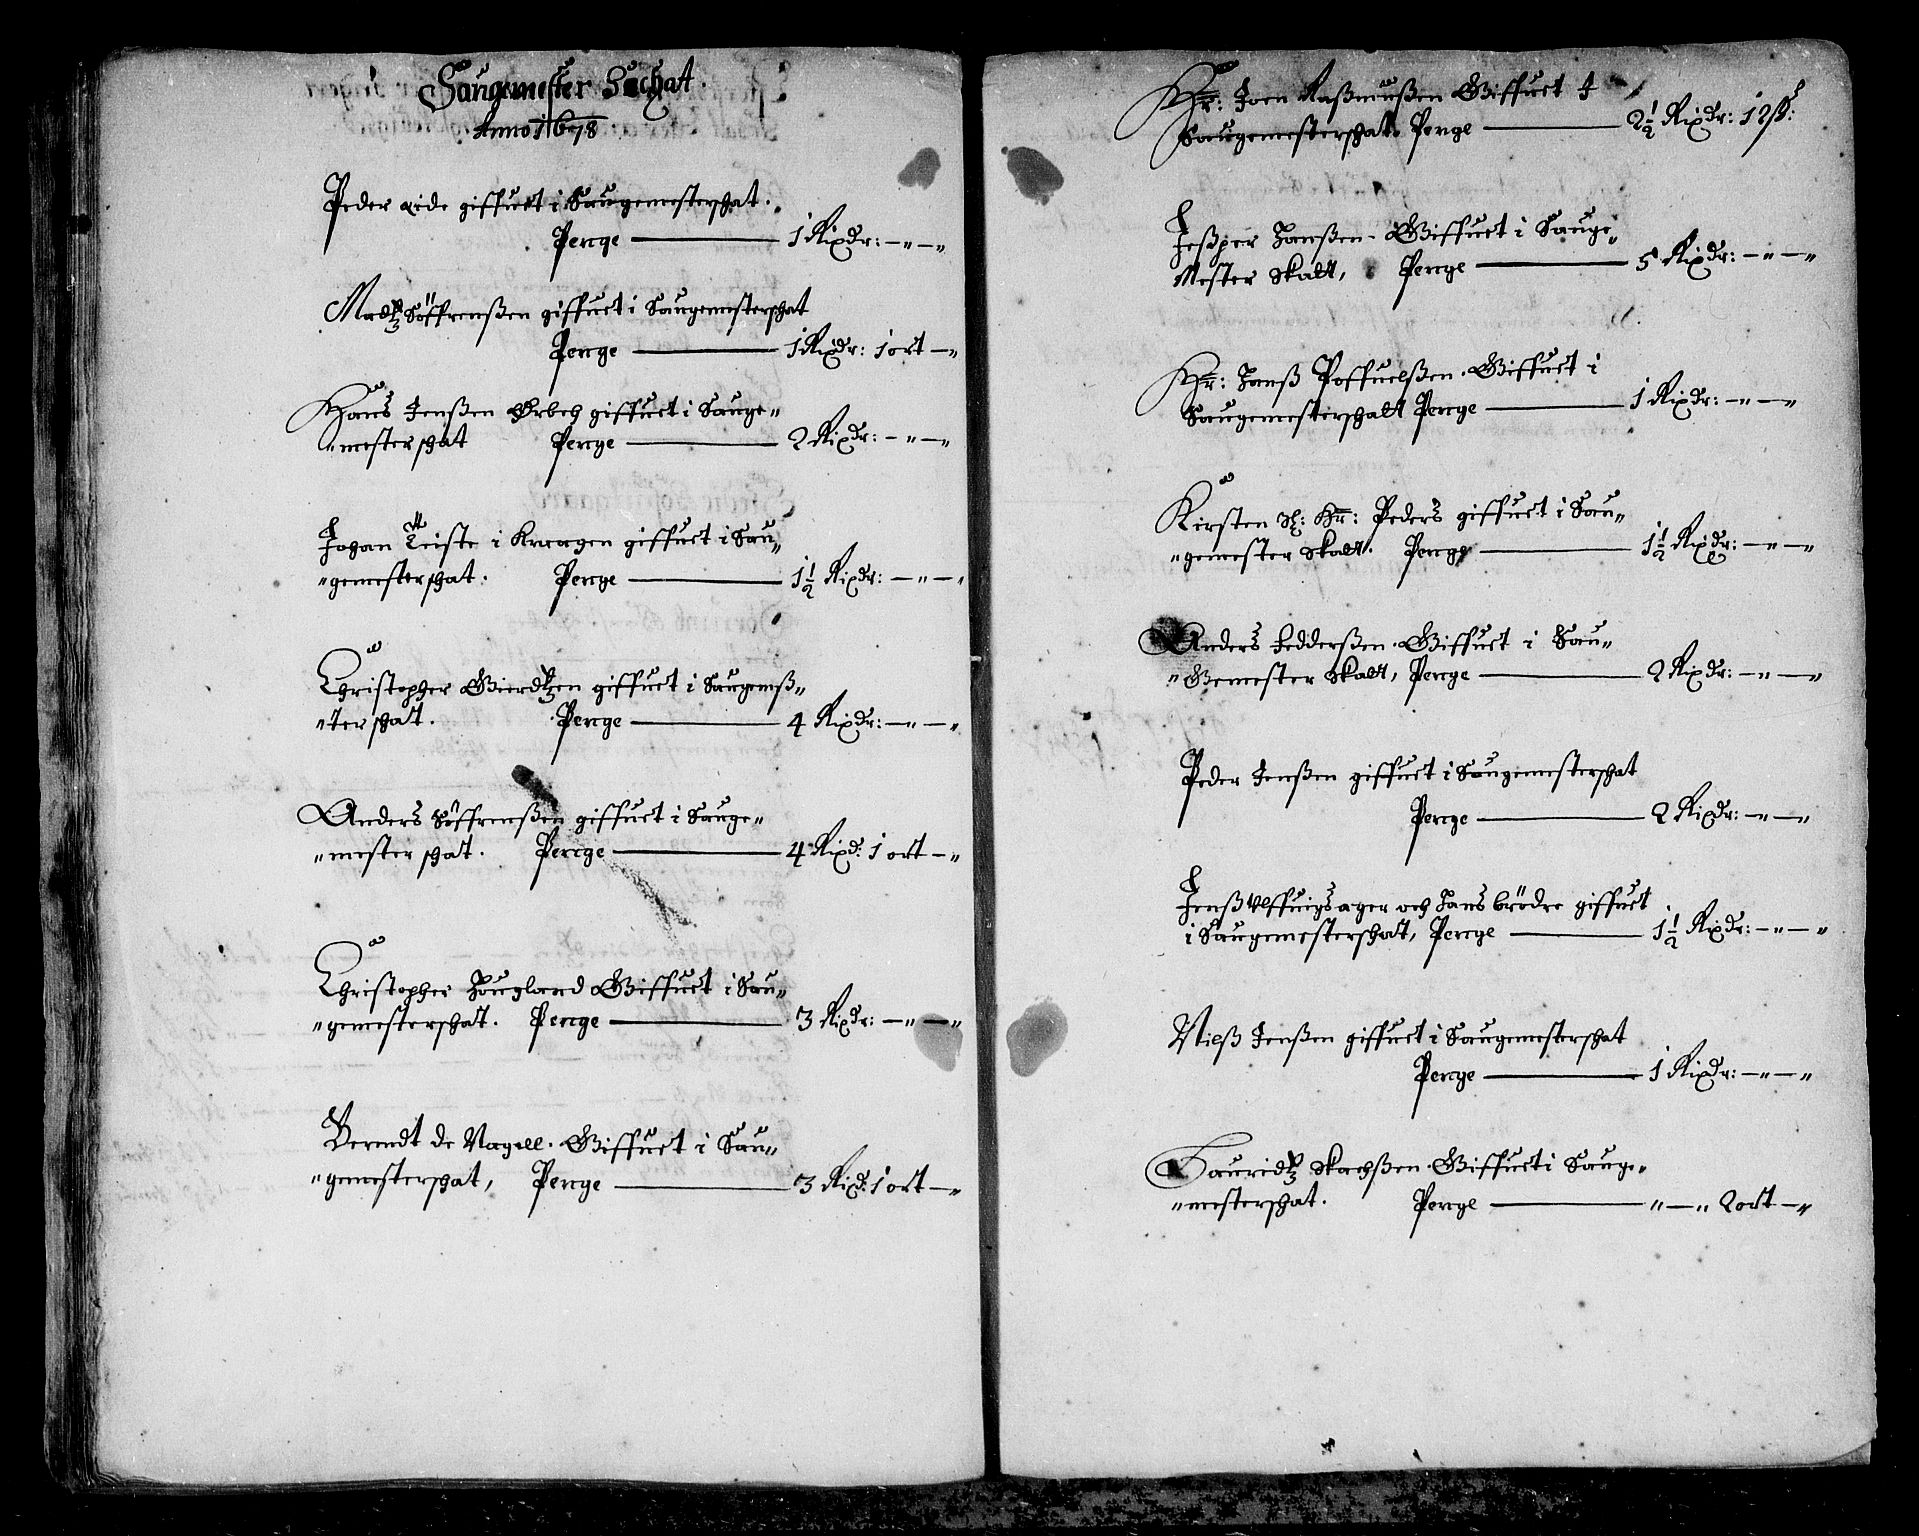 Saugemester Schat.
Anno 1678
Peder Lide giffuet i Saugemesterschat.
Penge — 1 Rixdr: — „ — „
Madtz Söffrenßen giffuet i Saugemesterschat
Penge — 1 Rixdr: 1 ort — „
Hans Jenßen Ørbech giffuet i Sauge„
„mesterschat Penge — 2 Rixdr: — „ — „
Johan Teiste i Kraagen giffuet i Sau„
„gemesterschat. Penge — 1 1/2 Rixdr: — „ — „
Christopher Gierdtzen giffuet i Saugemeß„
„terschat. Penge — 4 Rixdr: — „ — „
Anders Söffrenßen giffuet i Sauge„
„mesterschat. Penge — 4 Rixd: 1 ort — „
Christopher Hougland Giffuet i Sau„
„gemesterschat. Penge — 3 Rixdr: — „ — „
Berendt de Nagell. Giffuet i Sau„
„gemesterschat, Penge — 3 Rixd: 1 ort — „
Hr: Joen Raßmußen Giffuet I
Saugemesterschat Penge — 2 1/2 Rixdr: 12 ß:
Jeßper Hanßen Giffuet i Sauge„
Mester Skatt, Penge — 5 Rixdr: — „ — „
Hr: Hanß Poffuelßen. Giffuet i
Saugemesterschatt Penge — 1 Rixdr: — „ — „
Kirsten Sl: Hr: Peders giffuet i Sau„
„gemester Skatt. Penge — 1 1/2 Rixdr: — „ — „
Anders Fedderßen. Giffuet i Sau„
„Gemester Skatt, Penge — 2 Rixdr: — „ — „
Peder Jenßen giffuet i Saugemesterschat
Penge — 2 Rixdr: — „ — „
Jenß Ulffuigsager och Hans brödre giffuet
i Saugemesterschat, Penge — 1 1/2 Rixdr: — „ — „
Nielß Jenßen giffuet i Saugemesterschat
Penge — 1 Rixdr: — „ — „
Lauridtz Skachßen. Giffuet i Sauge„
„mesterschat. Penge — „ — „ 2 ort — „